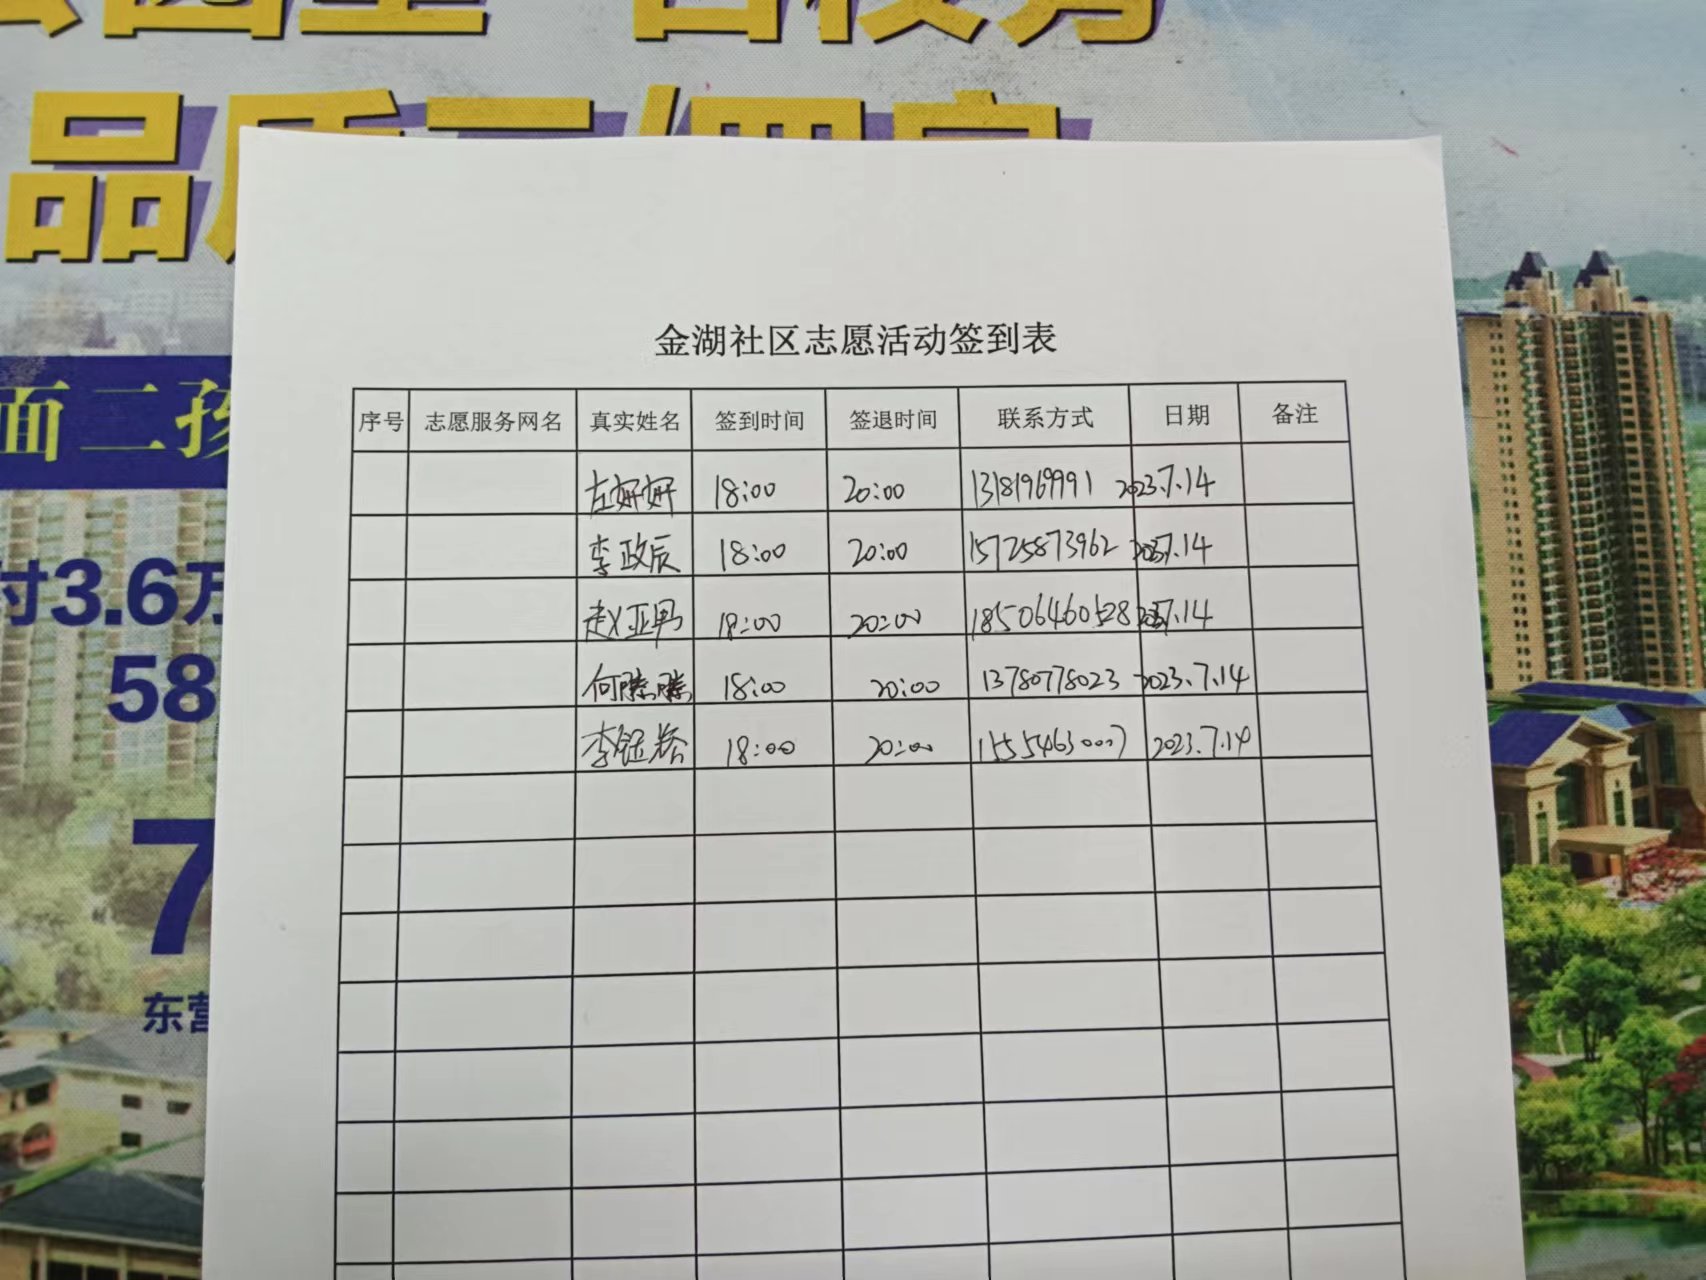 品质
面二孩
付3.6万
58
7
东营
金湖社区志愿活动签到表
序号 志愿服务网名 真实姓名 签到时间 签退时间 联系方式 日期 备注
左妍妍 18:00 20:00 13181969991 2023.7.14
李政辰 18:00 20:00 15725873962 2023.7.14
赵亚男 18:00 20:00 18506460528 2023.7.14
何 18:00 20:00 13780778023 2023.7.14
李钰 18:00 20:00 15554630007 2023.7.14